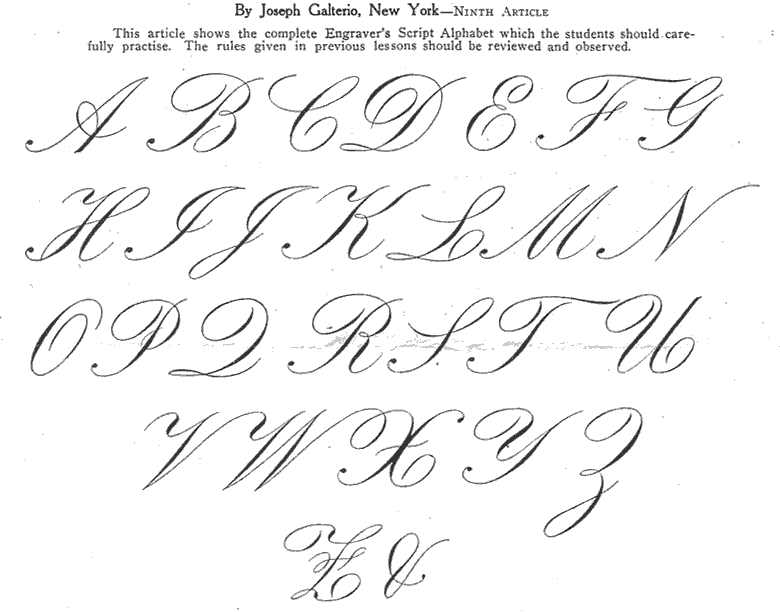 By Joseph Galterio, New York—Ninth Article
This article shows the complete Engraver's Script Alphabet which the students should care-
fully practise. The rules given in previous lessons should be reviewed and observed.
A B C D E F G
H I J K L M N
O P Q R S T U
V W X Y Z
Z &